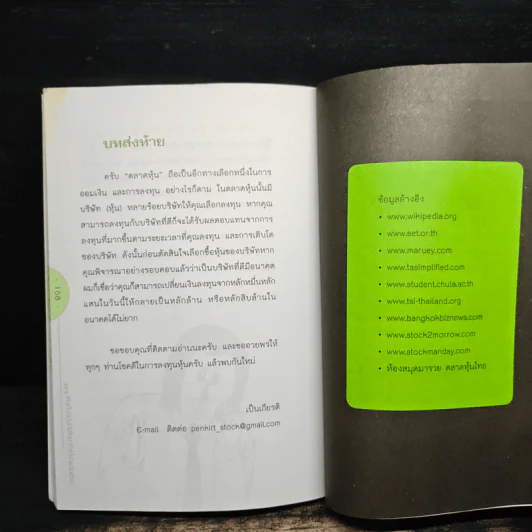 บทส่งท้าย
ครับ “ตลาดหุ้น” ถือเป็นอีกทางเลือกหนึ่งในการ
ออมเงิน และการลงทุน อย่างไรก็ตาม ในตลาดหุ้นนั้นมี
บริษัท (หุ้น) หลายร้อยบริษัทให้คุณเลือกลงทุน หากคุณ
สามารถลงทุนกับบริษัทที่ดีก็จะได้รับผลตอบแทนจากการ
ลงทุนที่มากขึ้นตามระยะเวลาที่คุณลงทุน และการเติบโต
ของบริษัท ดังนั้นก่อนตัดสินใจเลือกซื้อหุ้นของบริษัทหาก
คุณพิจารณาอย่างรอบคอบแล้วว่าเป็นบริษัทที่ดีมีอนาคต
ผมก็เชื่อว่าคุณก็สามารถเปลี่ยนเงินลงทุนจากหลักหมื่นหลัก
แสนในวันนี้ให้กลายเป็นหลักล้าน หรือหลักสิบล้านใน
อนาคตได้ไม่ยาก
ขอขอบคุณที่ติดตามอ่านนะครับ และขออวยพรให้
ทุกๆ ท่านโชคดีในการลงทุนหุ้นครับ แล้วพบกันใหม่
เป็นเกียรติ
E-mail ติดต่อ penkirt_stock@gmail.com
168
ข้อมูลอ้างอิง
• www.wikipedia.org
• www.set.or.th
• www.maruey.com
• www.tasimplified.com
• www.student.chula.ac.th
• www.tsi-thailand.org
• www.bangkokbiznews.com
• www.stock2morrow.com
• www.stockmanday.com
• ห้องสมุดมารวย ตลาดหุ้นไทย